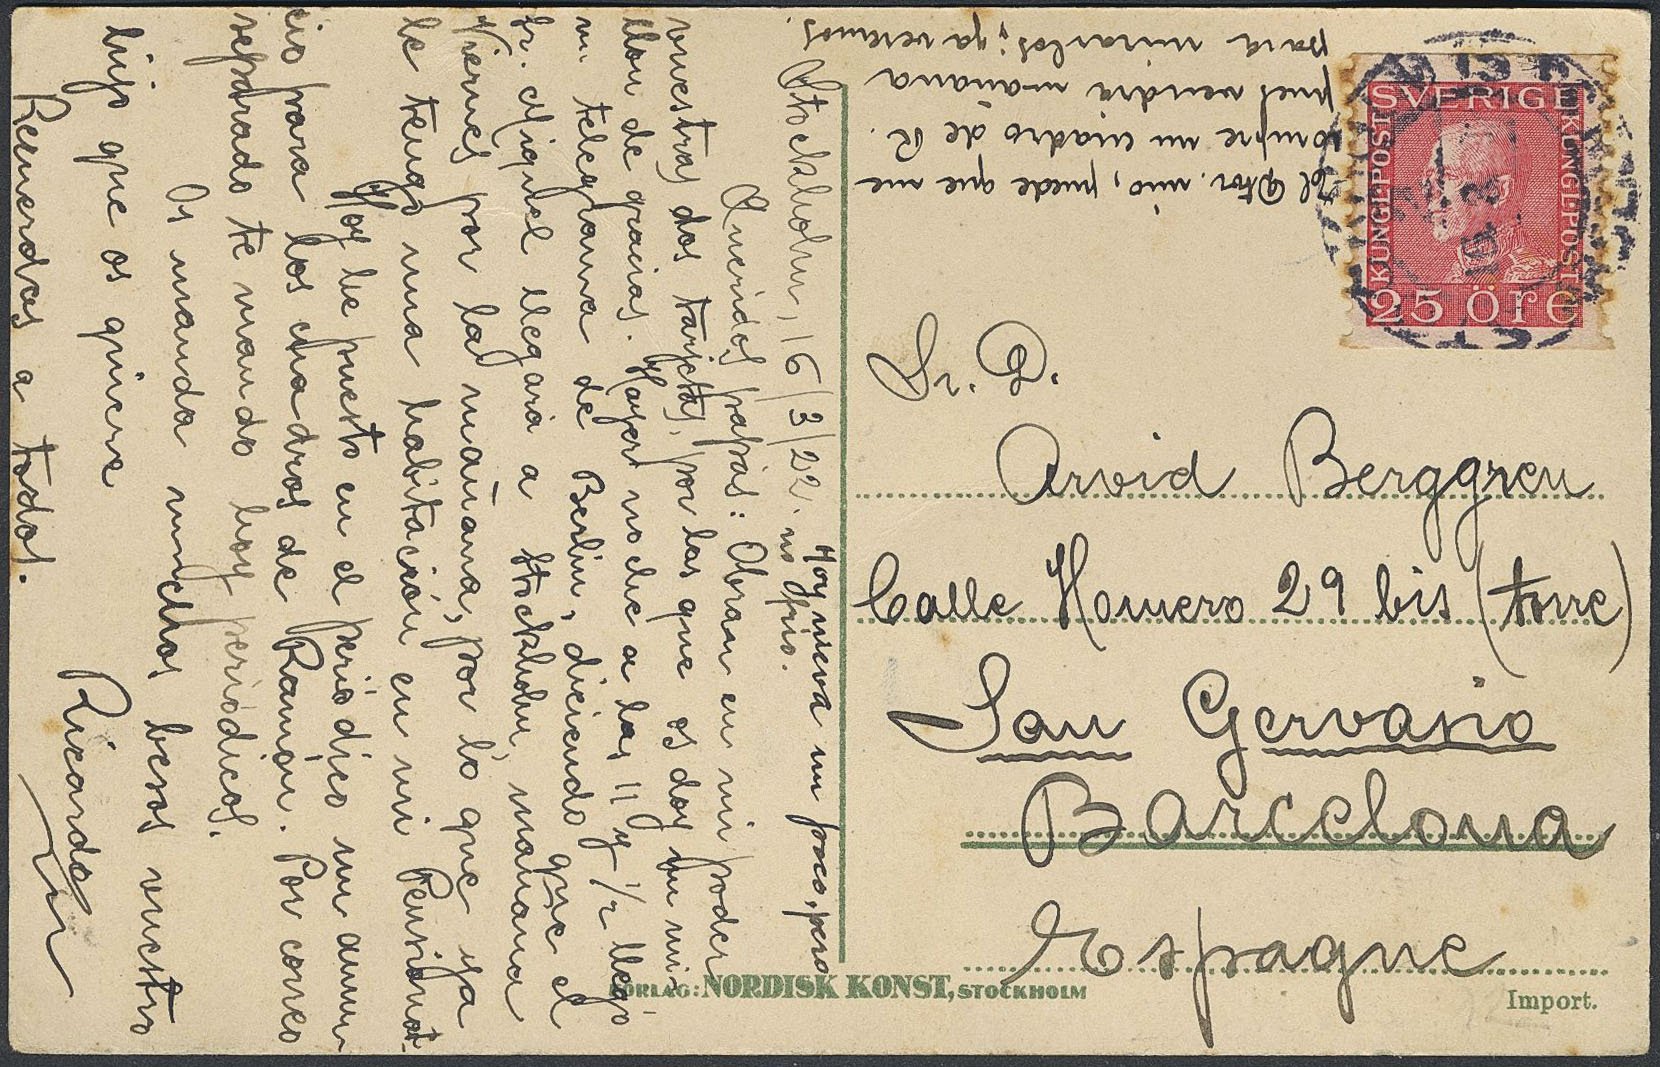 Stockholm, 16/3/22.
Hoy nieva un poco, pero
no frio.
Queridos papás: Obran en mi poder
vuestras dos tarjetas, por las que os doy un mi-
llon de gracias. Hayer noche a las 11 y 1/2 llegó
un telegrama de Berlin, diciendo que el
Sr. Miquel llegará a Stockholm, mañana
Viernes por la mañana, por lo que ya
le tengo una habitación en mi Pensionat.
Hoy he puesto en el periódico un anun-
cio para los cuadros de Ramón. Por correo
separado te mando hoy periódicos.
Os manda muchos besos vuestro
hijo que os quiere
Ricardo
Recuerdos a todos.
El Dtor. mio, puede que me
compre un cuadro de R.
pues vendrá mañana
para mirarlos; ya veremos.
SVERIGE
KUNGL·POST
KUNGL·POST
25 ÖRE
16 3
Sr. D.
Arvid Berggren
Calle Homero 29 bis (torre)
San Gervasio
Barcelona
Espagne
FÖRLAG: NORDISK KONST, STOCKHOLM
Import.